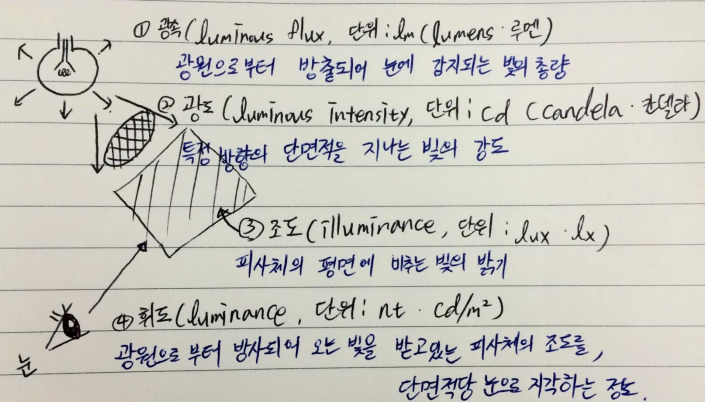 ① 광속 (luminous flux, 단위 : lm (lumens · 루멘)
광원으로부터 방출되어 눈에 감지되는 빛의 총량
② 광도 (luminous intensity, 단위 : cd (candela · 칸델라)
특정 방향의 단면적을 지나는 빛의 강도
③ 조도 (illuminance, 단위 : lux · lx)
피사체의 평면에 비추는 빛의 밝기
④ 휘도 (luminance, 단위 : nt · cd/m²)
눈
광원으로부터 방사되어 오는 빛을 받고있는 피사체의 조도를,
단면적당 눈으로 지각하는 정도.